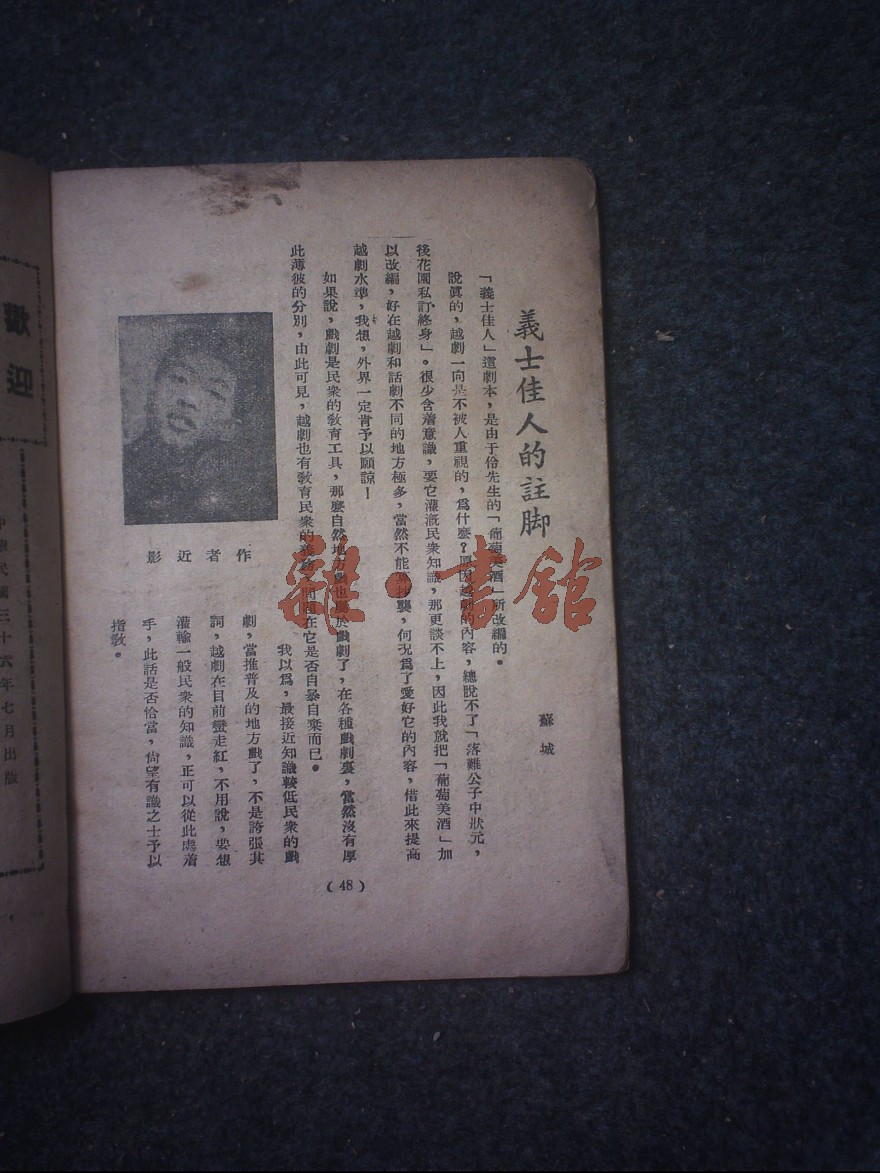 義士佳人的註脚
蘇城
「義士佳人」這劇本，是由于伶先生的「葡萄美酒」所改編的。
說眞的，越劇一向是不被人重視的，爲什麽？原因越劇的內容，總說不了「落難公子中狀元，
後花園私訂終身」。很少含着意識，要它灌漑民衆知識，那更談不上，因此我就把「葡萄美酒」加
以改編，好在越劇和話劇不同的地方極多，當然不能算抄襲，何況爲了愛好它的內容，借此來提高
越劇水準，我想，外界一定肯予以願諒！
如果說，戲劇是民衆的敎育工具，那麽自然地方戲也屬於戲劇了，在各種戲劇裏，當然沒有厚
此薄彼的分別，由此可見，越劇也有敎育民衆的義務，問題在它是否自暴自棄而已。
我以爲，最接近知識較低民衆的戲
劇，當推普及的地方戲了，不是誇張其
詞，越劇在目前蠻走紅，不用說，要想
灌輸一般民衆的知識，正可以從此處着
手，此話是否恰當，尙望有識之士予以
指敎。
作者近影
(48)
雜·書館
歡迎
民國三十六年七月出版